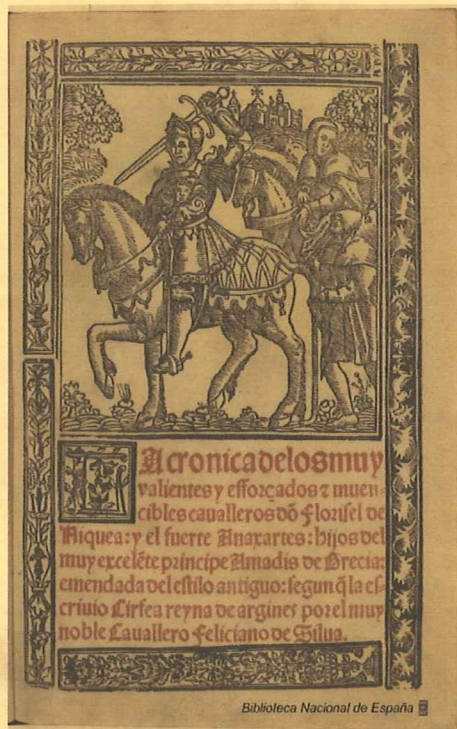 La cronica delos muy
valientes y efforçados ⁊ muen-
cibles caualleros dō Florisel de
Niquea: y el fuerte Anaxartes: hijos del
muy excelēte principe Amadis de Grecia:
emendada del estilo antiguo: segun q̄ la es-
criuio Cirfea reyna de argines por el muy
noble Cauallero Feliciano de Silua.
Biblioteca Nacional de España